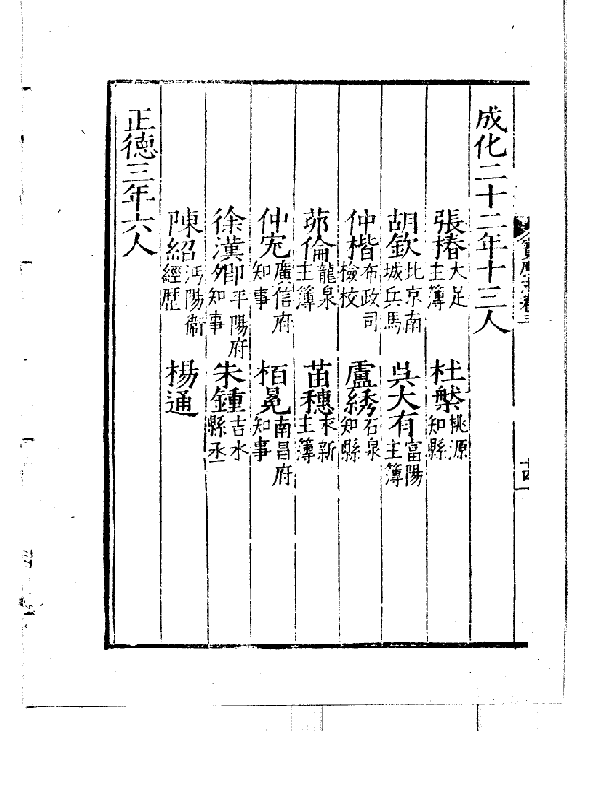 成化二十二年十三人
張椿大足主簿 杜槃桃源知縣
胡欽北京南城兵馬 吳大有富陽主簿
仲楷布政司檢校 盧綉石泉知縣
茆倫龍泉主簿 苗穗永新主簿
仲完廣信府知事 栢冕南昌府知事
徐漢卿平陽府知事 朱鍾吉水縣丞
陳紹沔陽衞經歷 楊通
正德三年六人